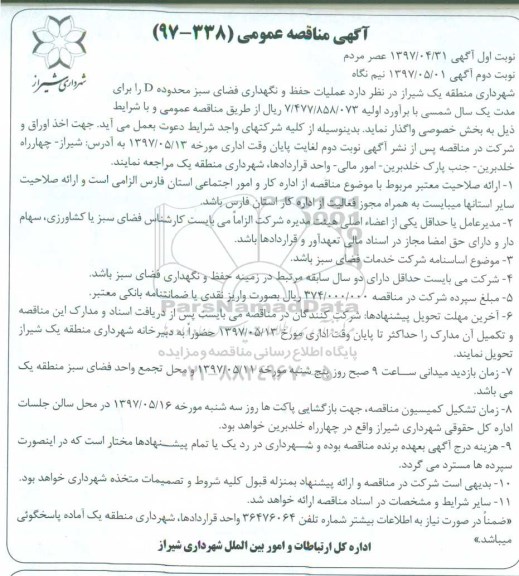 آگهی مناقصه عمومی (۳۳۸-۹۷)
شهرداری شیراز
نوبت اول آگهی ۱۳۹۷/۰۴/۳۱ عصر مردم
نوبت دوم آگهی ۱۳۹۷/۰۵/۰۱ نیم نگاه
شهرداری منطقه یک شیراز در نظر دارد عملیات حفظ و نگهداری فضای سبز محدوده D را برای
مدت یک سال شمسی با برآورد اولیه ۷/۴۷۷/۸۵۸/۰۷۳ ریال از طریق مناقصه عمومی و با شرایط
ذیل به بخش خصوصی واگذار نماید. بدینوسیله از کلیه شرکتهای واجد شرایط دعوت بعمل می آید. جهت اخذ اوراق و
شرکت در مناقصه پس از نشر آگهی نوبت دوم لغایت پایان وقت اداری مورخه ۱۳۹۷/۰۵/۱۳ به آدرس: شیراز- چهارراه
خلدبرین- جنب پارک خلدبرین- امور مالی- واحد قراردادها، شهرداری منطقه یک مراجعه نمایند.
۱- ارائه صلاحیت معتبر مربوط با موضوع مناقصه از اداره کار و امور اجتماعی استان فارس الزامی است و ارائه صلاحیت
سایر استانها میبایست به همراه مجوز فعالیت از اداره کار استان فارس باشد.
۲- مدیرعامل یا حداقل یکی از اعضاء اصلی هیئت مدیره شرکت الزاماً می بایست کارشناس فضای سبز یا کشاورزی، سهام
دار و دارای حق امضا مجاز در اسناد مالی تعهدآور و قراردادها باشد.
۳- موضوع اساسنامه شرکت خدمات فضای سبز باشد.
۴- شرکت می بایست حداقل دارای دو سال سابقه مرتبط در زمینه حفظ و نگهداری فضای سبز باشد.
۵- مبلغ سپرده شرکت در مناقصه ۳۷۴/۰۰۰/۰۰۰ ریال بصورت واریز نقدی یا ضمانتنامه بانکی معتبر.
ParsNamadData
۶- آخرین مهلت تحویل پیشنهادها: شرکت کنندگان در مناقصه می بایست پس از دریافت اسناد و مدارک این مناقصه
و تکمیل آن مدارک را حداکثر تا پایان وقت اداری مورخ ۱۳۹۷/۰۵/۱۳ حضوراً به دبیرخانه شهرداری منطقه یک شیراز
تحویل نمایند.
پایگاه اطلاع رسانی مناقصه و مزایده
۷- زمان بازدید میدانی ساعت ۹ صبح روز پنج شنبه مورخه ۱۳۹۷/۰۵/۱۱ و محل تجمع واحد فضای سبز منطقه یک
می باشد.
۰۲۱-۸۸۳۴۹۶۷۰-۵
۸- زمان تشکیل کمیسیون مناقصه، جهت بازگشایی پاکت ها روز سه شنبه مورخه ۱۳۹۷/۰۵/۱۶ در محل سالن جلسات
اداره کل حقوقی شهرداری شیراز واقع در چهارراه خلدبرین خواهد بود.
۹- هزینه درج آگهی بعهده برنده مناقصه بوده و شهرداری در رد یک یا تمام پیشنهادها مختار است که در اینصورت
سپرده ها مسترد می گردد.
۱۰- بدیهی است شرکت در مناقصه و ارائه پیشنهاد بمنزله قبول کلیه شروط و تصمیمات متخذه شهرداری خواهد بود.
۱۱- سایر شرایط و مشخصات در اسناد مناقصه ارائه خواهد شد.
«ضمناً در صورت نیاز به اطلاعات بیشتر شماره تلفن ۳۶۴۷۶۰۶۴ واحد قراردادها، شهرداری منطقه یک آماده پاسخگوئی
میباشد.»
اداره کل ارتباطات و امور بین الملل شهرداری شیراز